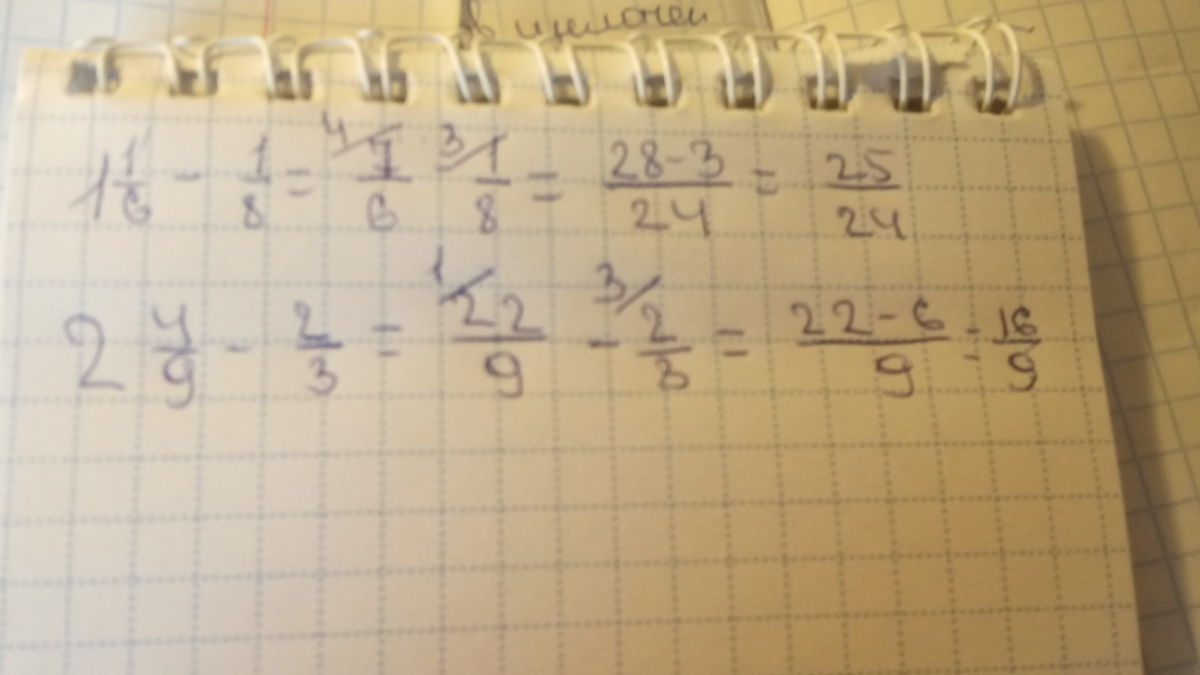 в
1 1/6 - 1/8 = 4/ 7/6 3/ 1/8 = 28-3/24 = 25/24
2 4/9 - 2/3 = 1/ 22/9 - 3/ 2/3 = 22-6/9 = 16/9